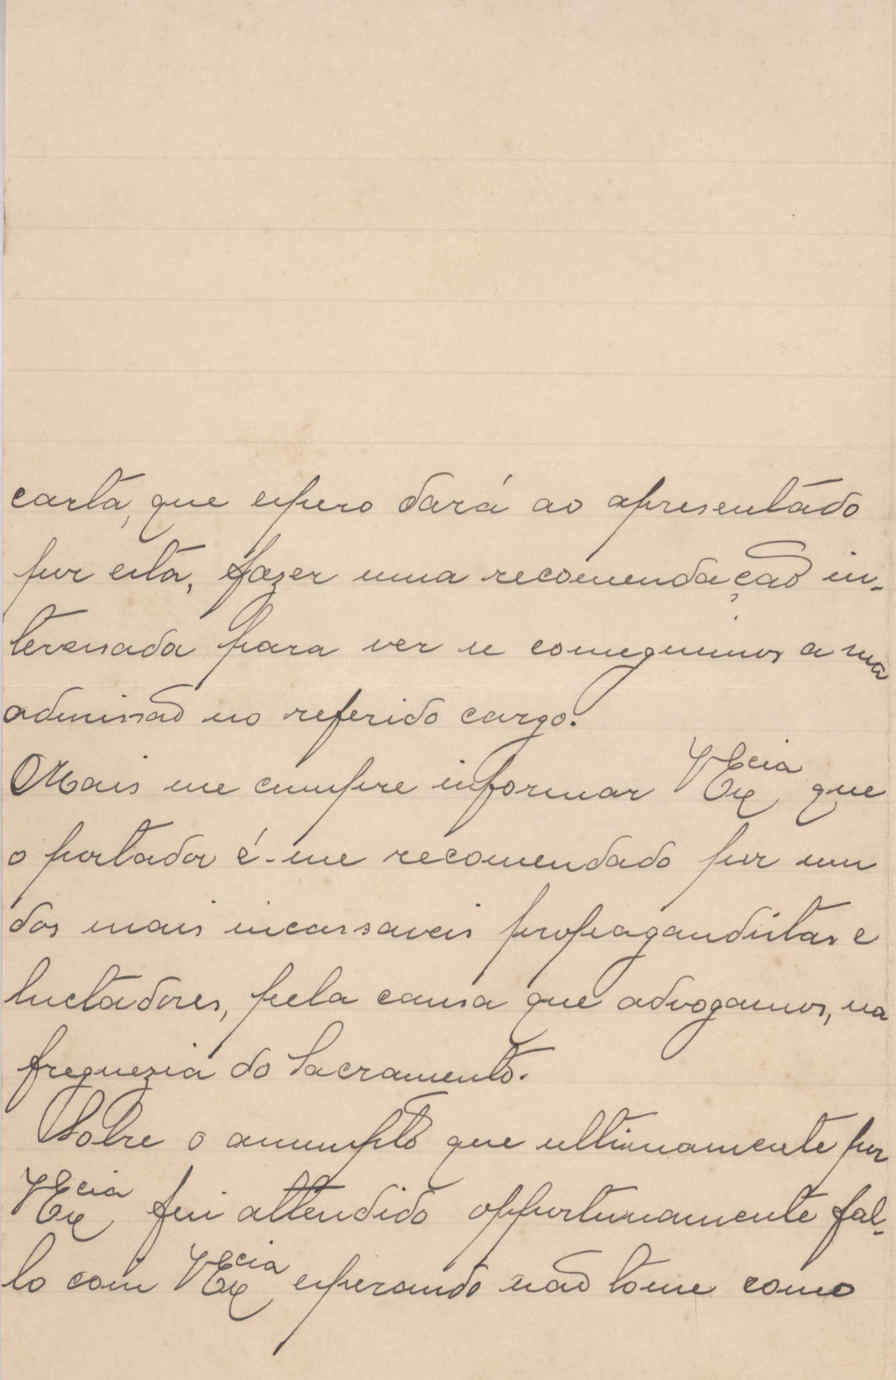 carta, que espero dará ao apresentado
por esta, fazer uma recomendação in-
teressada para ver se conseguimos a sua
admissão no referido cargo.
Mais me cumpre informar VEx^cia que
o portador é-me recomendado por um
dos mais incassaveis propagandistas e
luctadores, pela causa que advogamos, na
freguezia do Sacramento.
Sobre o assumpto que ultimamente por
VEx^cia fui attendido opportunamente fal-
lo com VEx^cia esperando não tome como